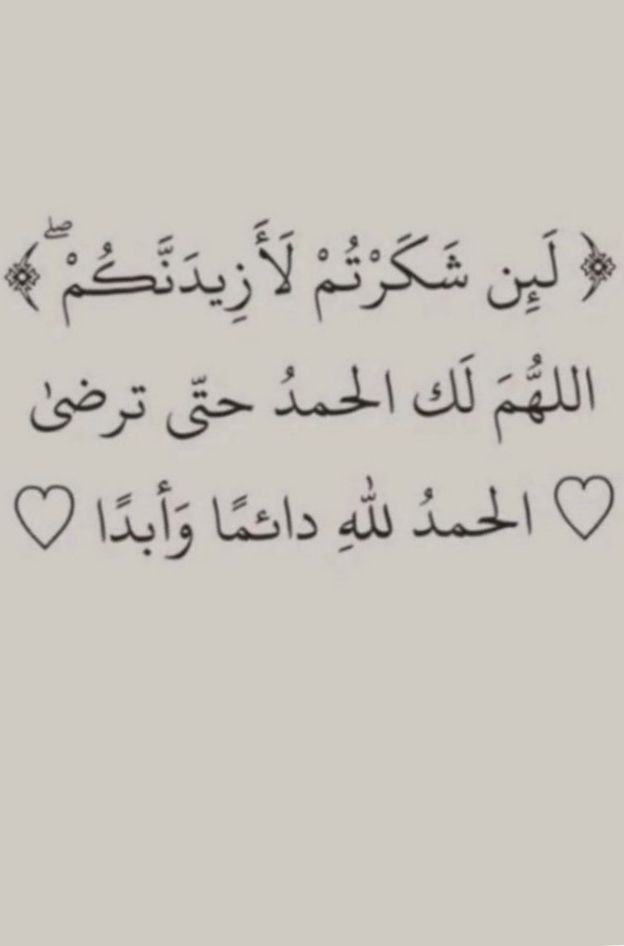 ﴿ لَئِن شَكَرْتُمْ لَأَزِيدَنَّكُمْ ۖ ﴾
اللهُّمَ لَك الحمدُ حتّى ترضىٰ
♡ الحمدُ للّٰهِ دائمًا وَأبدًا ♡